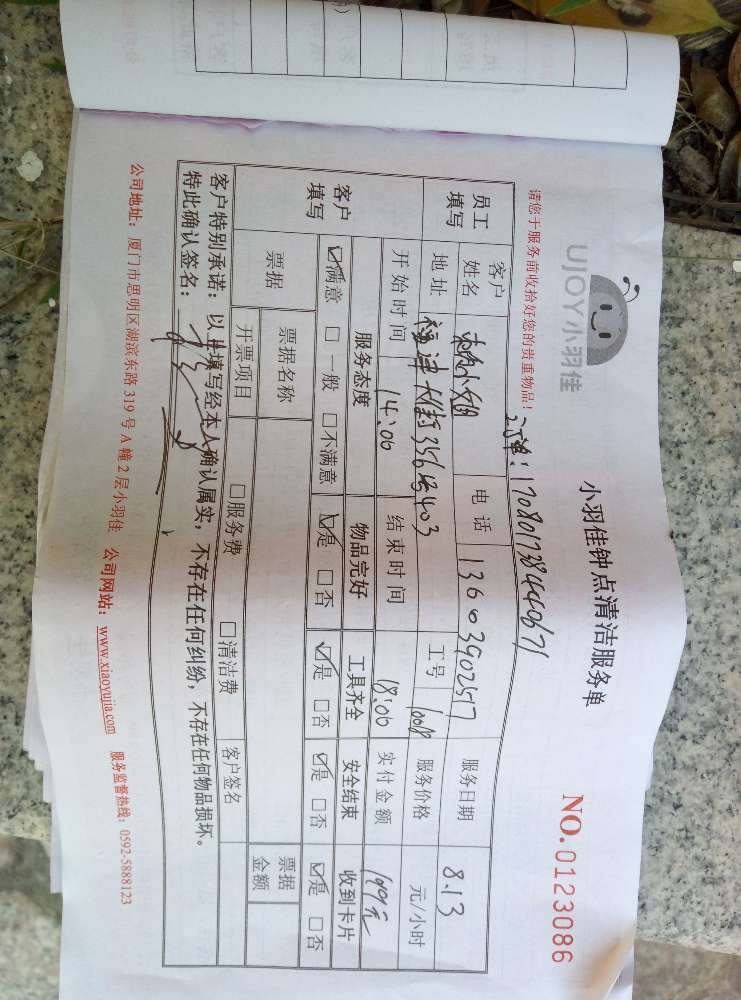 UJOY小羽佳
小羽佳钟点清洁服务单
NO.0123086
请您于服务前收拾好您的贵重物品！
员工填写
客户姓名
电话
13603902517
服务日期
8.13
地址
356号403
工号
服务价格
元/小时
开始时间
14:00
结束时间
18:00
实付金额
169元
客户填写
服务态度
物品完好
工具齐全
安全结束
收到卡片
☑满意 □一般 □不满意
☑是 □否
☑是 □否
☑是 □否
☑是 □否
票据
票据名称
票据金额
开票项目
□服务费
□清洁费
客户签名
客户特别承诺：以上填写经本人确认属实，不存在任何纠纷，不存在任何物品损坏。
特此确认签名：
公司地址：厦门市思明区湖滨东路 319 号 A 幢 2 层小羽佳 公司网站：www.xiaoyujia.com 服务监督热线：0592-5888123